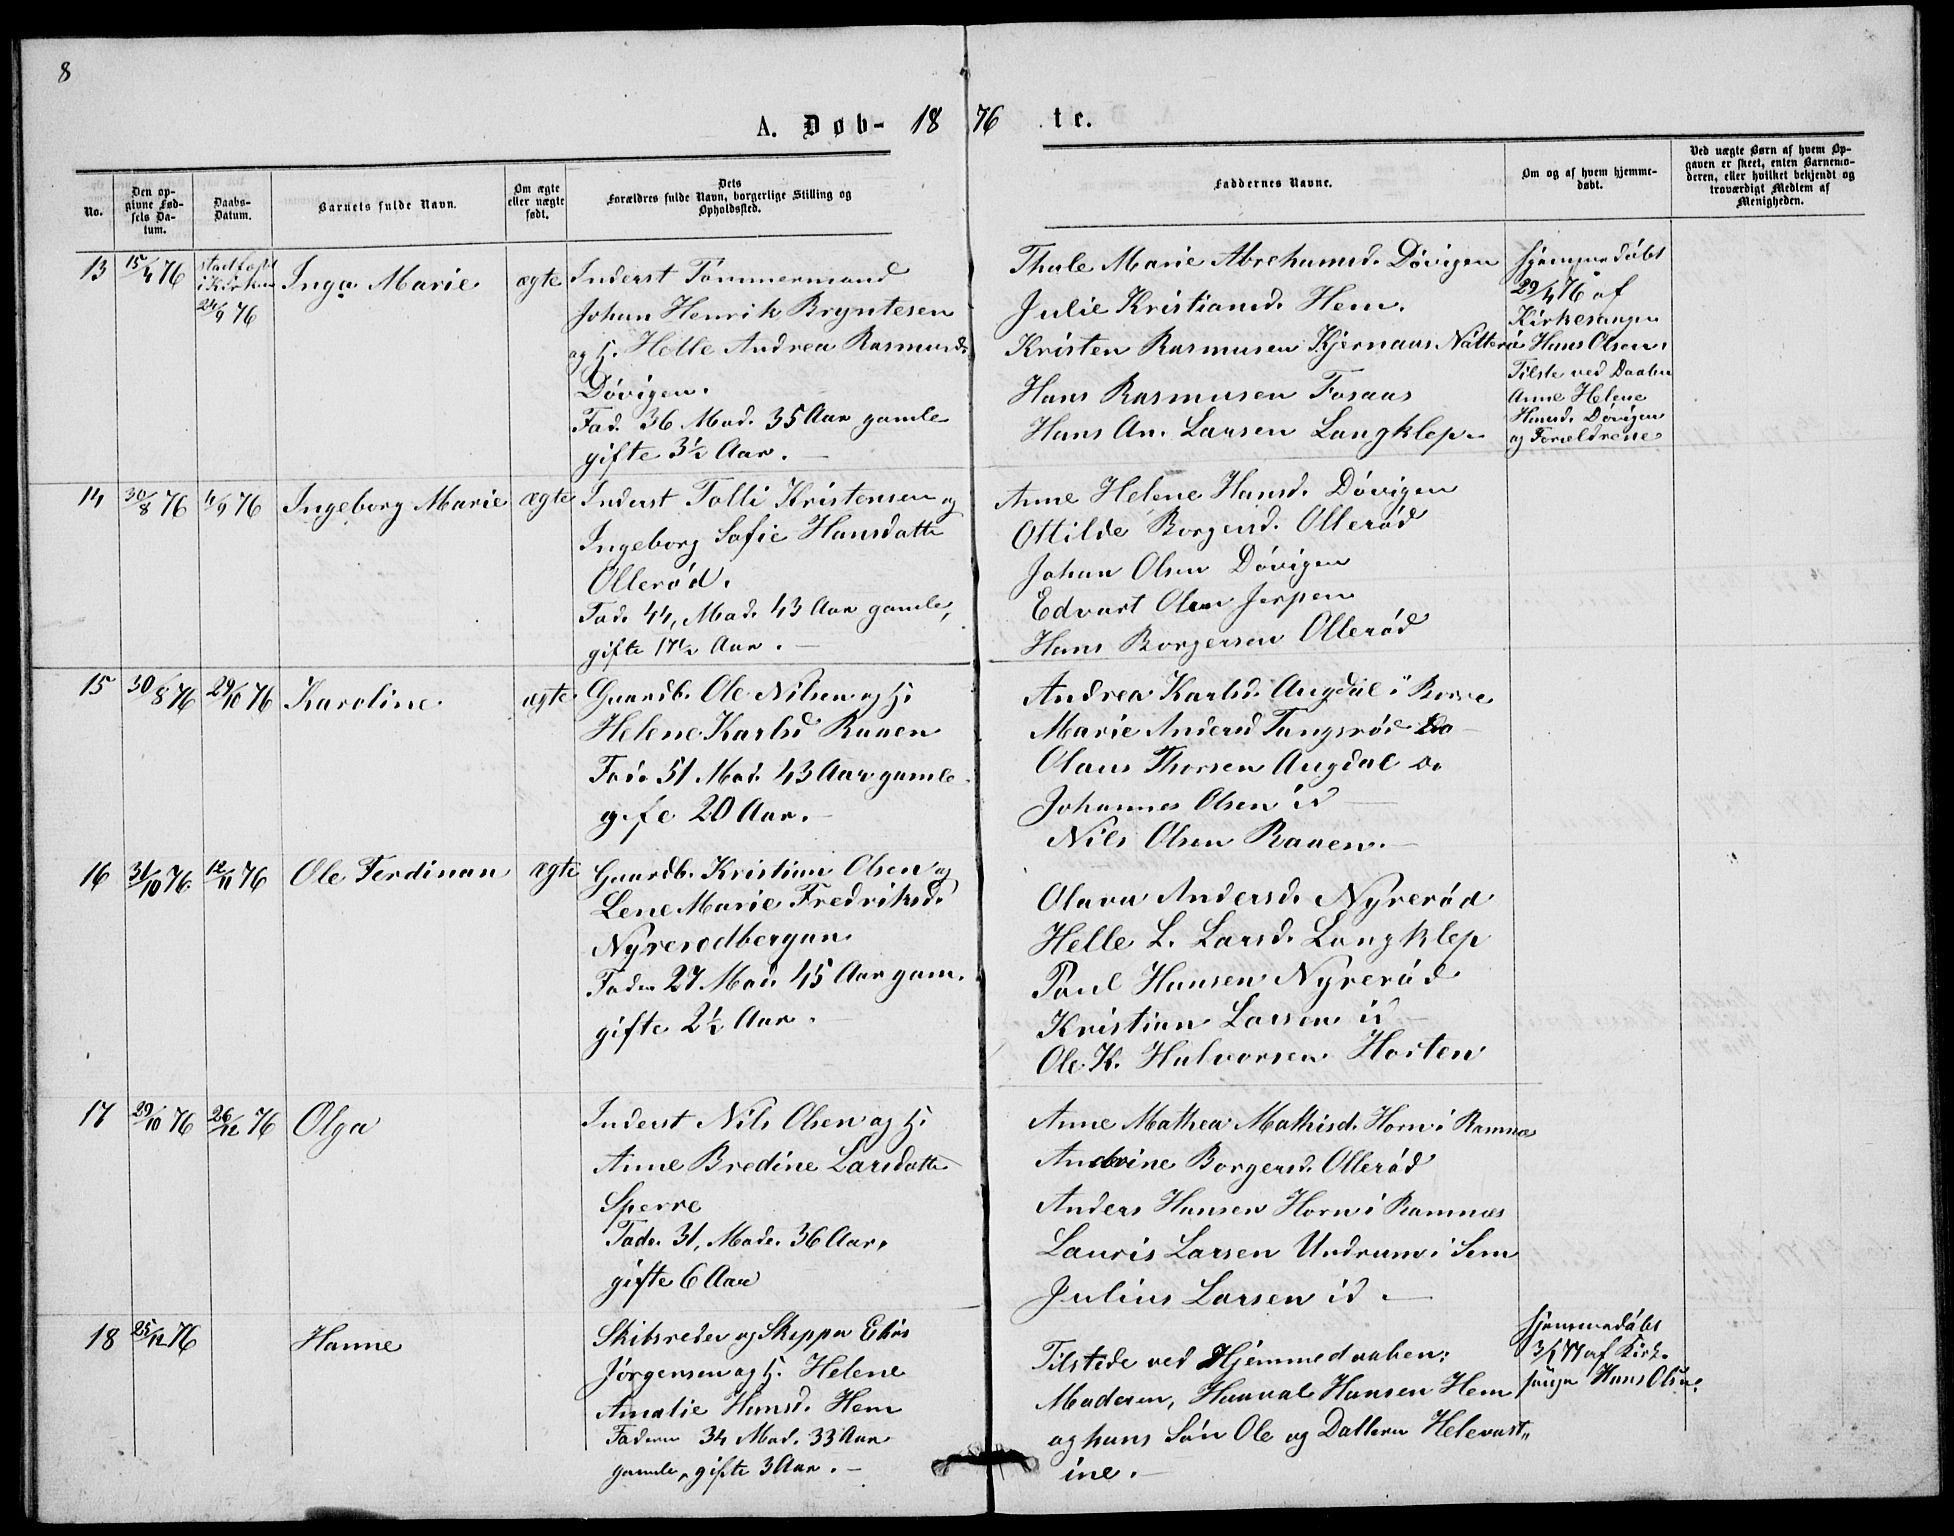 8
A. Døb- 18 76 te.
No.
Den op-
givne Fød-
sels Da-
tum.
Daabs-
Datum.
Barnets fulde Navn.
Om ægte
eller uægte
født.
Dets
Forældres fulde Navn, borgerlige Stilling og
Opholdssted.
Faddernes Navne.
Om og af hvem hjemme-
døbt.
Ved uægte Børn af hvem Op-
gaven er skeet, enten Barnemo-
deren, eller hvilket bekjendt og
troværdigt Medlem af
Menigheden.
13
15/4 76
stadfæst
i Kirken
24/9 76
Inga Marie
ægte
Inderst Tømmermand
Johan Henrik Bryntesen
og H. Helle Andrea Rasmusd.
Døvigen.
Fad. 36 Mod. 35 Aar gamle
gifte 3½ Aar. —
Thale Marie Abrahamsd. Døvigen
Julie Kristiansd. Hem.
Kristen Rasmusen Kjernaas Nøtterø
Hans Rasmusen Fosaas
Hans An. Larsen Langklep.
Hjemmedøbt
29/4 76 af
Kirkesanger
Hans Olsen.
Tilste ved Daaben
Anne Helene
Hansd. Døvigen
og Forældrene
14
30/8 76
4/9 76
Ingeborg Marie
ægte
Inderst Tolli Kristensen og
Ingeborg Sofie Hansdatte
Ollerød.
Fad. 44, Mod. 43 Aar gamle,
gifte 17½ Aar. —
Anne Helene Hansd. Døvigen
Ottilde Borgersd. Ollerød
Johan Olsen Døvigen
Edvart Olsen Jerpen
Hans Borgersen Ollerød
15
30/8 76
29/10 76
Karoline
ægte
Gaardb. Ole Nilsen og H.
Helene Karlsd Raaen
Fad. 51 Mod. 43 Aar gamle
gife 20 Aar. —
Andrea Karlsd. Augdal i Borre
Marie Andersd Tangsrød Do —
Olaus Thorsen Augdal Do
Johannes Olsen id —
Nils Olsen Raaen. —
16
31/10 76.
12/11 76
Ole Ferdinan
ægte
Gaardb. Kristian Olsen og
Lene Marie Fredriksd.
Nyrerødbergan
Faden 27 Mod. 45 Aar gam.
gifte 2½ Aar. —
Olava Andersd. Nyrerød
Helle L. Larsd. Langklep
Poul Hansen Nyrerød
Kristian Larsen id
Ole K. Halvorsen Horten
17
29/10 76
26/12 76
Olga
Inderst Nils Olsen og H.
Anne Bredine Larsdatte
Sperre
Fade. 31, Mode. 36 Aar,
gifte 6 Aar
Anne Mathea Mathisd. Horn i Ramnæs
Andrine Borgersd. Ollerød
Anders Hansen Horn i Ramnæs
Lauris Larsen Undrum i Sem
Julius Larsen id. —
18
25/12 76
Hanne
Skibsreder og Skipper Eliøs
Jørgensen og H. Helene
Amalie Hansd. Hem
Faderen 34 Mod. 33 Aar
gamle, gifte 3 Aar. —
Tilstede ved Hjemmedaaben:
Moderen, Haaval Hansen Hem
og hans Søn Ole og Dattera Helevast„
ine. —
Hjemmedøbt
3/1 77 af Kirke
sanger Hans Olsen.